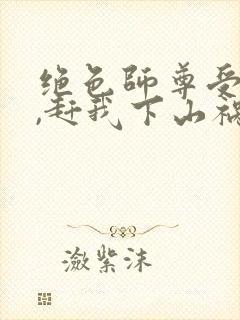 绝色师尊受
,赶我下山祸
潋紫沫